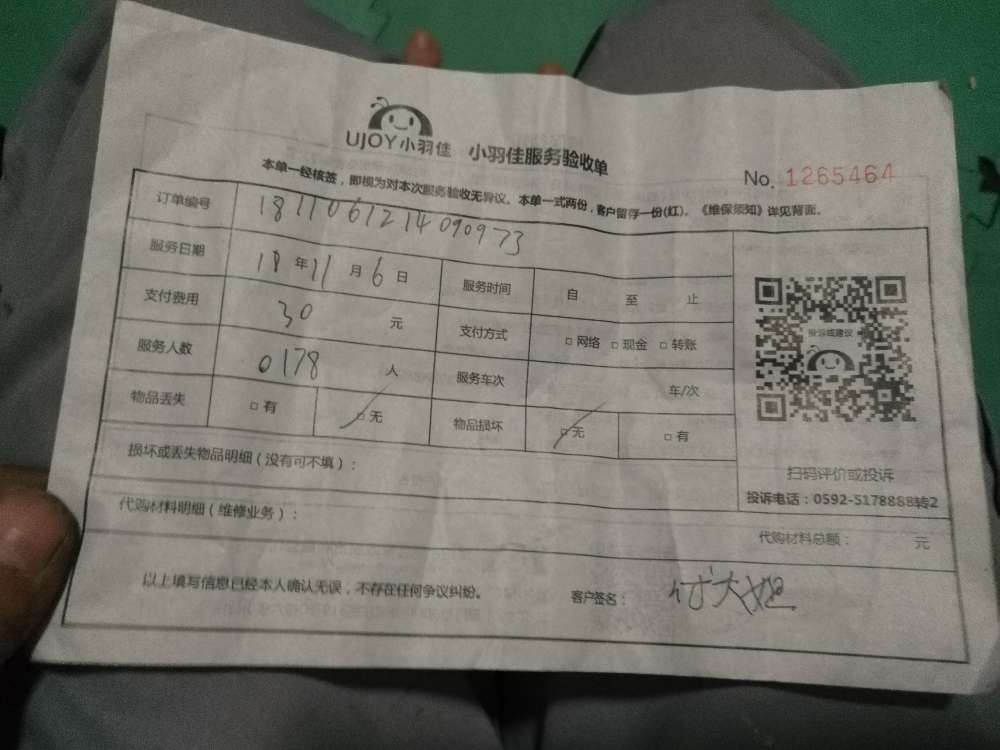 UJOY小羽佳 小羽佳服务验收单
No. 1265464
本单一经核签，即视为对本次服务验收无异议。本单一式两份，客户留存一份(红)。《维保须知》详见背面。
订单编号 1811061214090973
服务日期 18年11月6日 服务时间 自 至 止
支付费用 30 元 支付方式 □网络 □现金 □转账
服务人数 0178 人 服务车次 车/次
物品丢失 □有 □无 物品损坏 □无 □有
投诉或建议
扫码评价或投诉
投诉电话：0592-5178888转2
损坏或丢失物品明细（没有可不填）：
代购材料明细（维修业务）：
代购材料总额： 元
以上填写信息已经本人确认无误，不存在任何争议纠纷。
客户签名： 付大姐